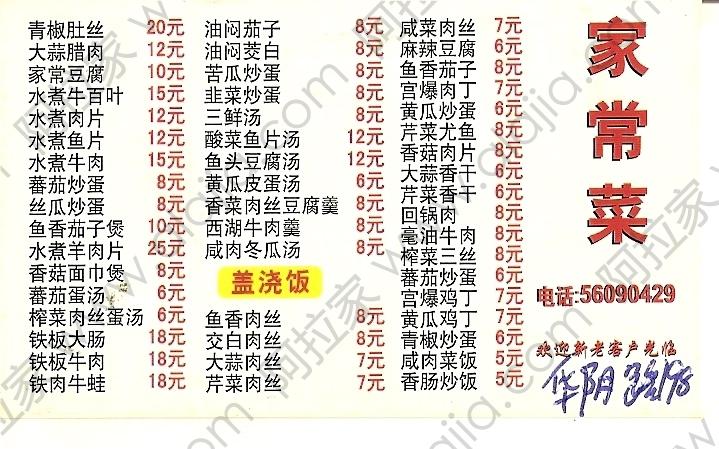 青椒肚丝 20元
大蒜腊肉 12元
家常豆腐 10元
水煮牛百叶 15元
水煮肉片 12元
水煮鱼片 12元
水煮牛肉 15元
蕃茄炒蛋 8元
丝瓜炒蛋 8元
鱼香茄子煲 10元
水煮羊肉片 25元
香菇面巾煲 8元
蕃茄蛋汤 6元
榨菜肉丝蛋汤 6元
铁板大肠 18元
铁板牛肉 18元
铁肉牛蛙 18元
油闷茄子 8元
油闷茭白 8元
苦瓜炒蛋 8元
韭菜炒蛋 8元
三鲜汤 8元
酸菜鱼片汤 12元
鱼头豆腐汤 12元
黄瓜皮蛋汤 6元
香菜肉丝豆腐羹 8元
西湖牛肉羹 8元
咸肉冬瓜汤 8元
盖浇饭
鱼香肉丝 8元
交白肉丝 8元
大蒜肉丝 7元
芹菜肉丝 7元
咸菜肉丝 7元
麻辣豆腐 6元
鱼香茄子 8元
宫爆肉丁 7元
黄瓜炒蛋 6元
芹菜尤鱼 8元
香菇肉片 8元
大蒜香干 6元
芹菜香干 6元
回锅肉 8元
毫油牛肉 8元
榨菜三丝 8元
蕃茄炒蛋 6元
宫爆鸡丁 7元
黄瓜鸡丁 7元
青椒炒蛋 6元
咸肉菜饭 5元
香肠炒饭 5元
家常菜
电话:56090429
欢迎新老客户光临
华阴路198
阿拉家 www.alajia.com